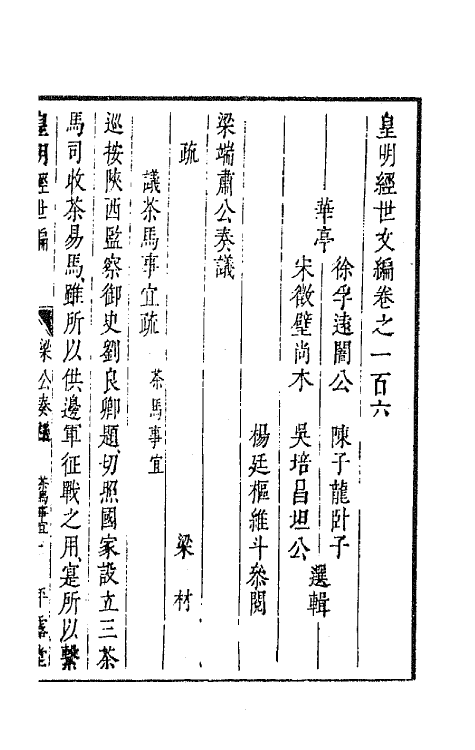 皇明經世文編卷之一百六
華亭
徐孚遠闇公 陳子龍臥子
宋徵璧尚木 吳培昌坦公
選輯
楊廷樞維斗叅閱
梁端肅公奏議
疏 梁材
議茶馬事宜疏 茶馬事宜
巡按陝西監察御史劉良卿題、切照國家設立三茶
馬司收茶易馬、雖所以供邊軍征戰之用、寔所以繫
皇明經世編 梁公奏議 茶馬事宜 一 平露堂